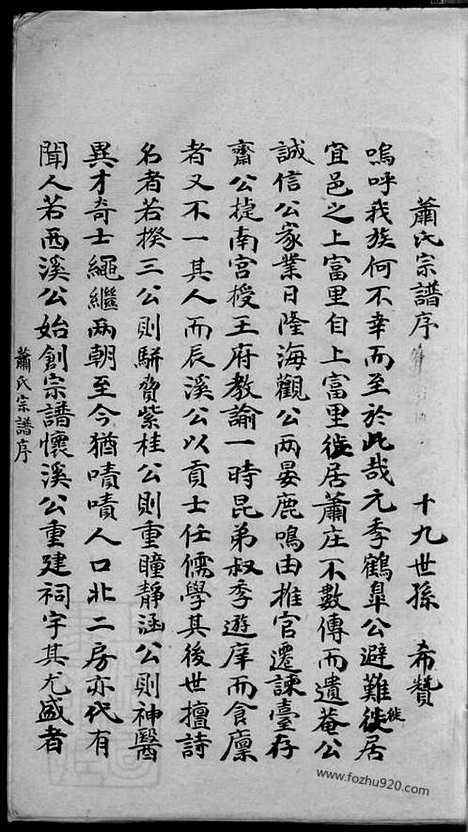 蕭氏宗譜序 十九世孫 希贊
嗚呼我族何不幸而至於此哉元季鶴臯公避難徙居
宜邑之上富里自上富里徙居蕭庄不數傳而遺菴公
誠信公家業日隆海觀公兩晏鹿鳴由推官遷諫臺存
齋公捷南宮授王府教諭一時昆弟叔季遊庠而食廩
者又不一其人而辰溪公以貢士任儒學其後世擅詩
名者若揆三公則駢賚紫桂公則重瞳靜涵公則神醫
異才奇士繩繼兩朝至今猶嘖嘖人口北二房亦代有
聞人若西溪公始創宗譜懷溪公重建祠宇其尤盛者
蕭氏宗譜序
www.fozhu920.com